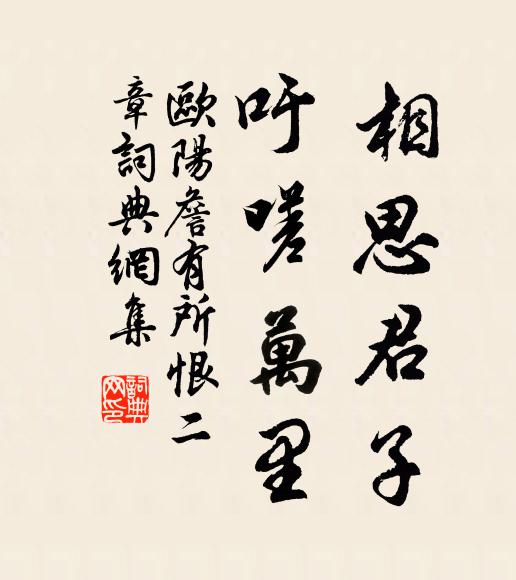 相思君子
吁嗟萬里
歐陽詹有所恨二
章詞典網集
詞典网印